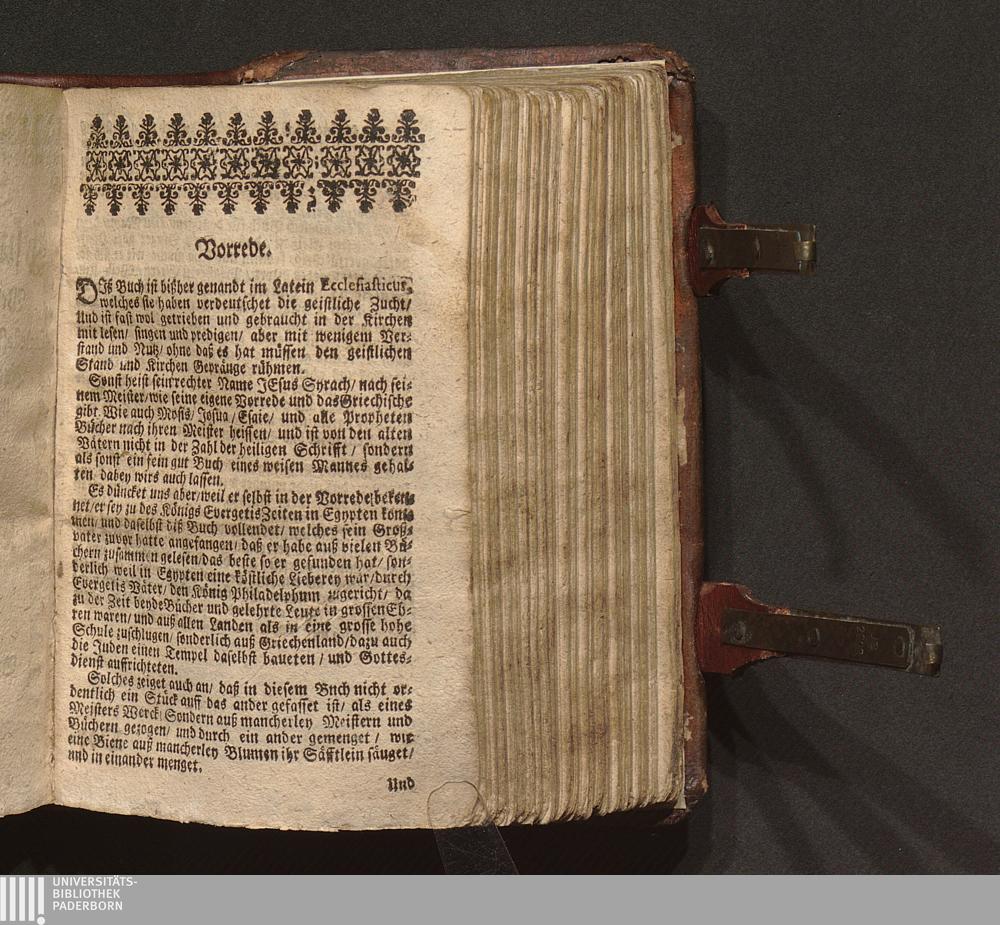 Vorrede.
DIß Buch ist bißher genandt im Latein Ecclesiasticus,
welches sie haben verdeutschet die geistliche Zucht/
Und ist fast wol getrieben und gebraucht in der Kirchen
mit lesen/ singen und predigen/ aber mit wenigem Ver-
stand und Nutz/ ohne daß es hat müssen den geistlichen
Stand und Kirchen Gepränge rühmen.
Sonst heist sein rechter Name JEsus Syrach/ nach sei-
nem Meister/ wie seine eigene Vorrede und das Griechische
gibt. Wie auch Mosis/ Josua/ Esaie/ und alle Propheten
Bücher nach ihren Meister heissen/ und ist von den alten
Vätern nicht in der Zahl der heiligen Schrifft/ sondern
als sonst ein fein gut Buch eines weisen Mannes gehal-
ten dabey wirs auch lassen.
Es düncket uns aber/ weil er selbst in der Vorrede beken-
net/ er sey zu des Königs Evergetis Zeiten in Egypten kom-
men/ und daselbst diß Buch vollendet/ welches sein Groß-
vater zuvor hatte angefangen/ daß er habe auß vielen Bü-
chern zusammen gelesen/ das beste so er gefunden hat/ son-
derlich weil in Egypten eine köstliche Lieberey war/ durch
Evergetis Väter/ den König Philadelphum zugericht/ da
zu der Zeit beyde Bücher und gelehrte Leute in grossen Eh-
ren waren/ und auß allen Landen als in eine grosse hohe
Schule zuschlugen/ sonderlich auß Griechenland/ dazu auch
die Juden einen Tempel daselbst baueten/ und Gottes-
dienst auffrichteten.
Solches zeiget auch an/ daß in diesem Bnch nicht or-
dentlich ein Stück auff das ander gefasset ist/ als eines
Meisters Werck/ Sondern auß mancherley Meistern und
Büchern gezogen/ und durch ein ander gemenget/ wie
eine Biene auß mancherley Blumen ihr Säfftlein säuget/
und in einander menget.
Und
UNIVERSITÄTS-
BIBLIOTHEK
PADERBORN